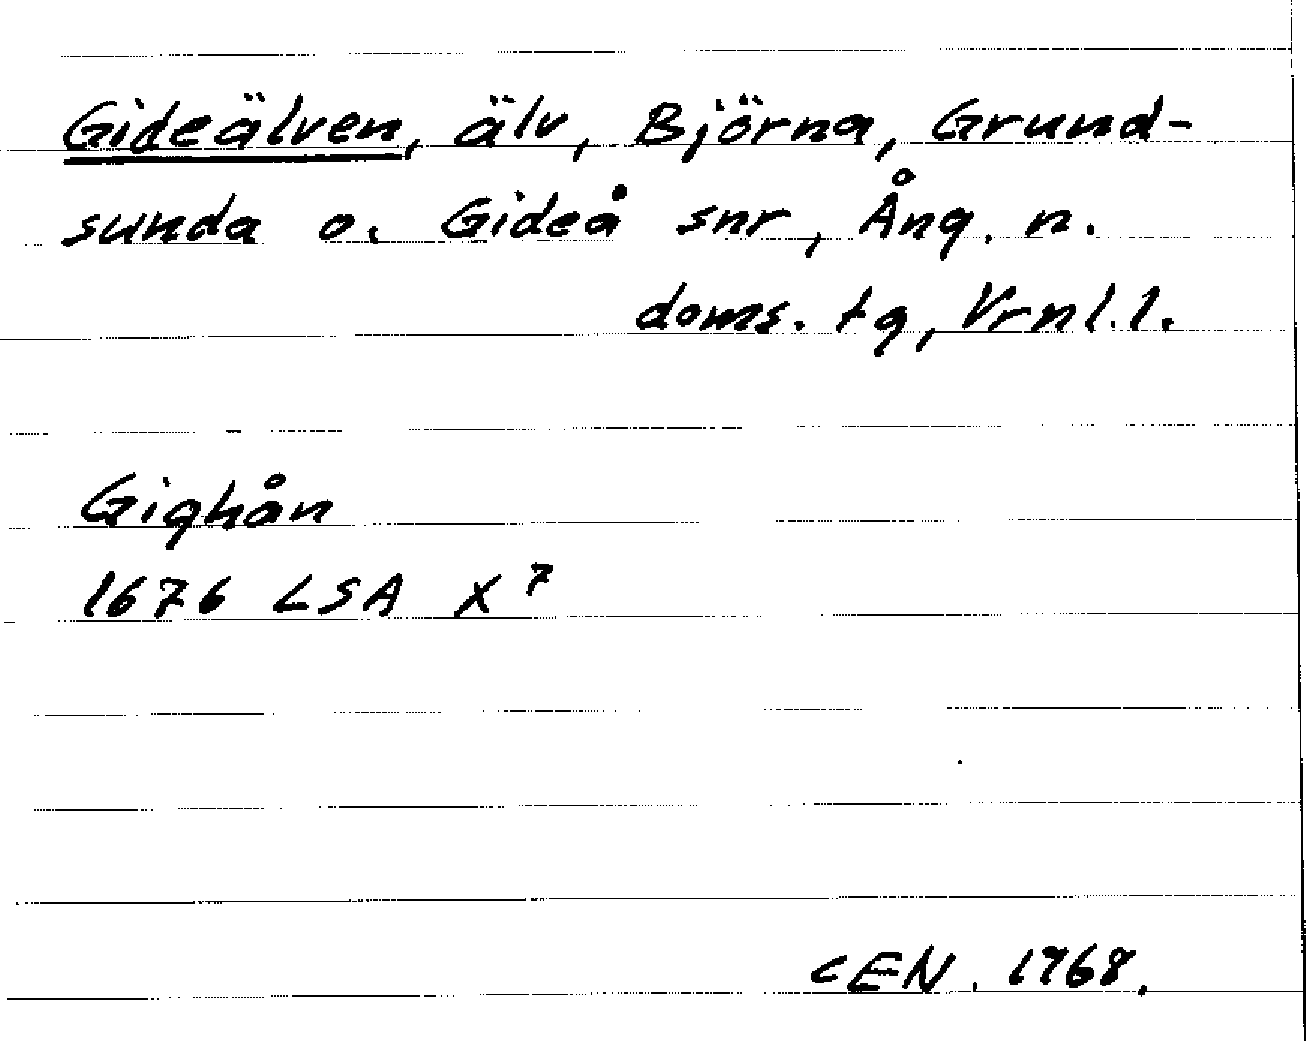 Gideälven, älv, Björna, Grund-
sunda o. Gideå snr, Ång. n.
doms. tg, Vrnl.l.
Gighån
1676 LSA X 7
CEN. 1968.